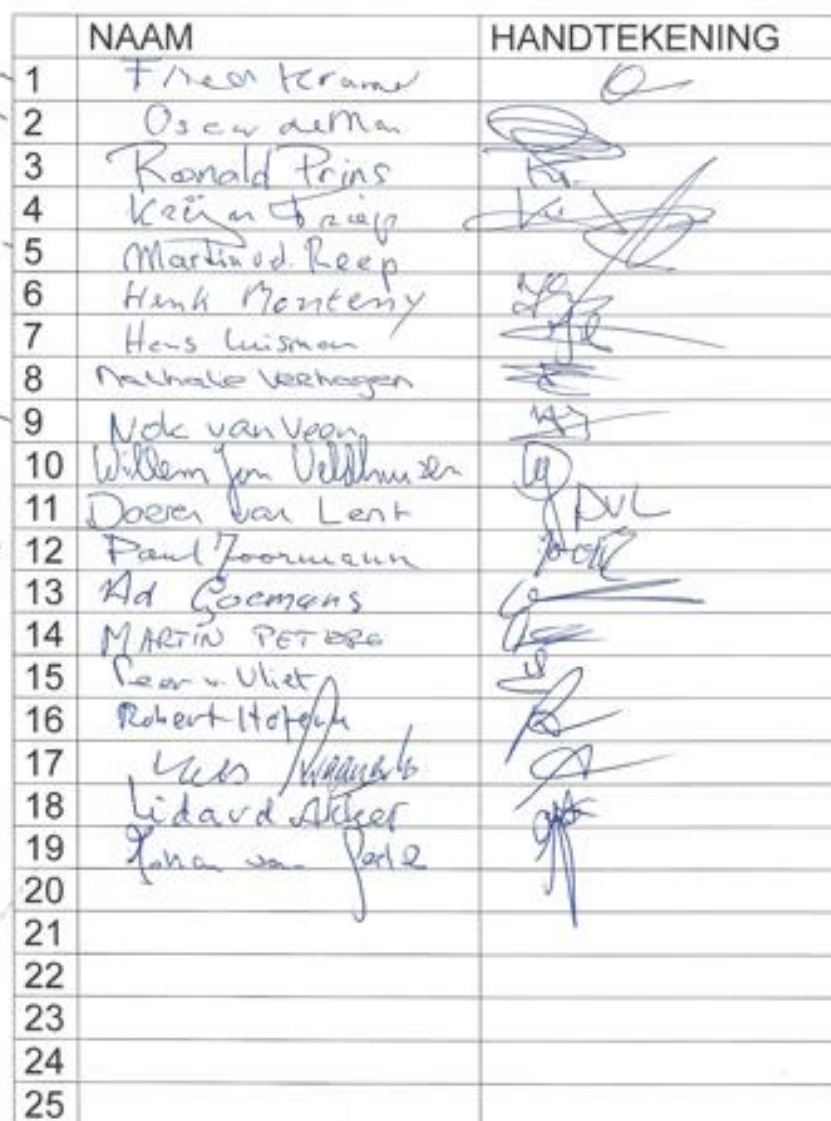 NAAM HANDTEKENING
1 Fred Kramer
2 Oscar de Man
3 Ronald Prins
4 Krijn Triep
5 Martin v.d. Reep
6 Henk Monteny
7 Hans Luisman
8 Nathalie Verhagen
9 Nok van Veen
10 Willem Jan Veldhuizen
11 Doeren van Lent DVL
12 Paul Zoormann
13 Ad Goemans
14 MARTIN PETERS
15 Peer v. Vliet
16 Robert
17
18 Lida vd Akker
19 Johan van
20
21
22
23
24
25